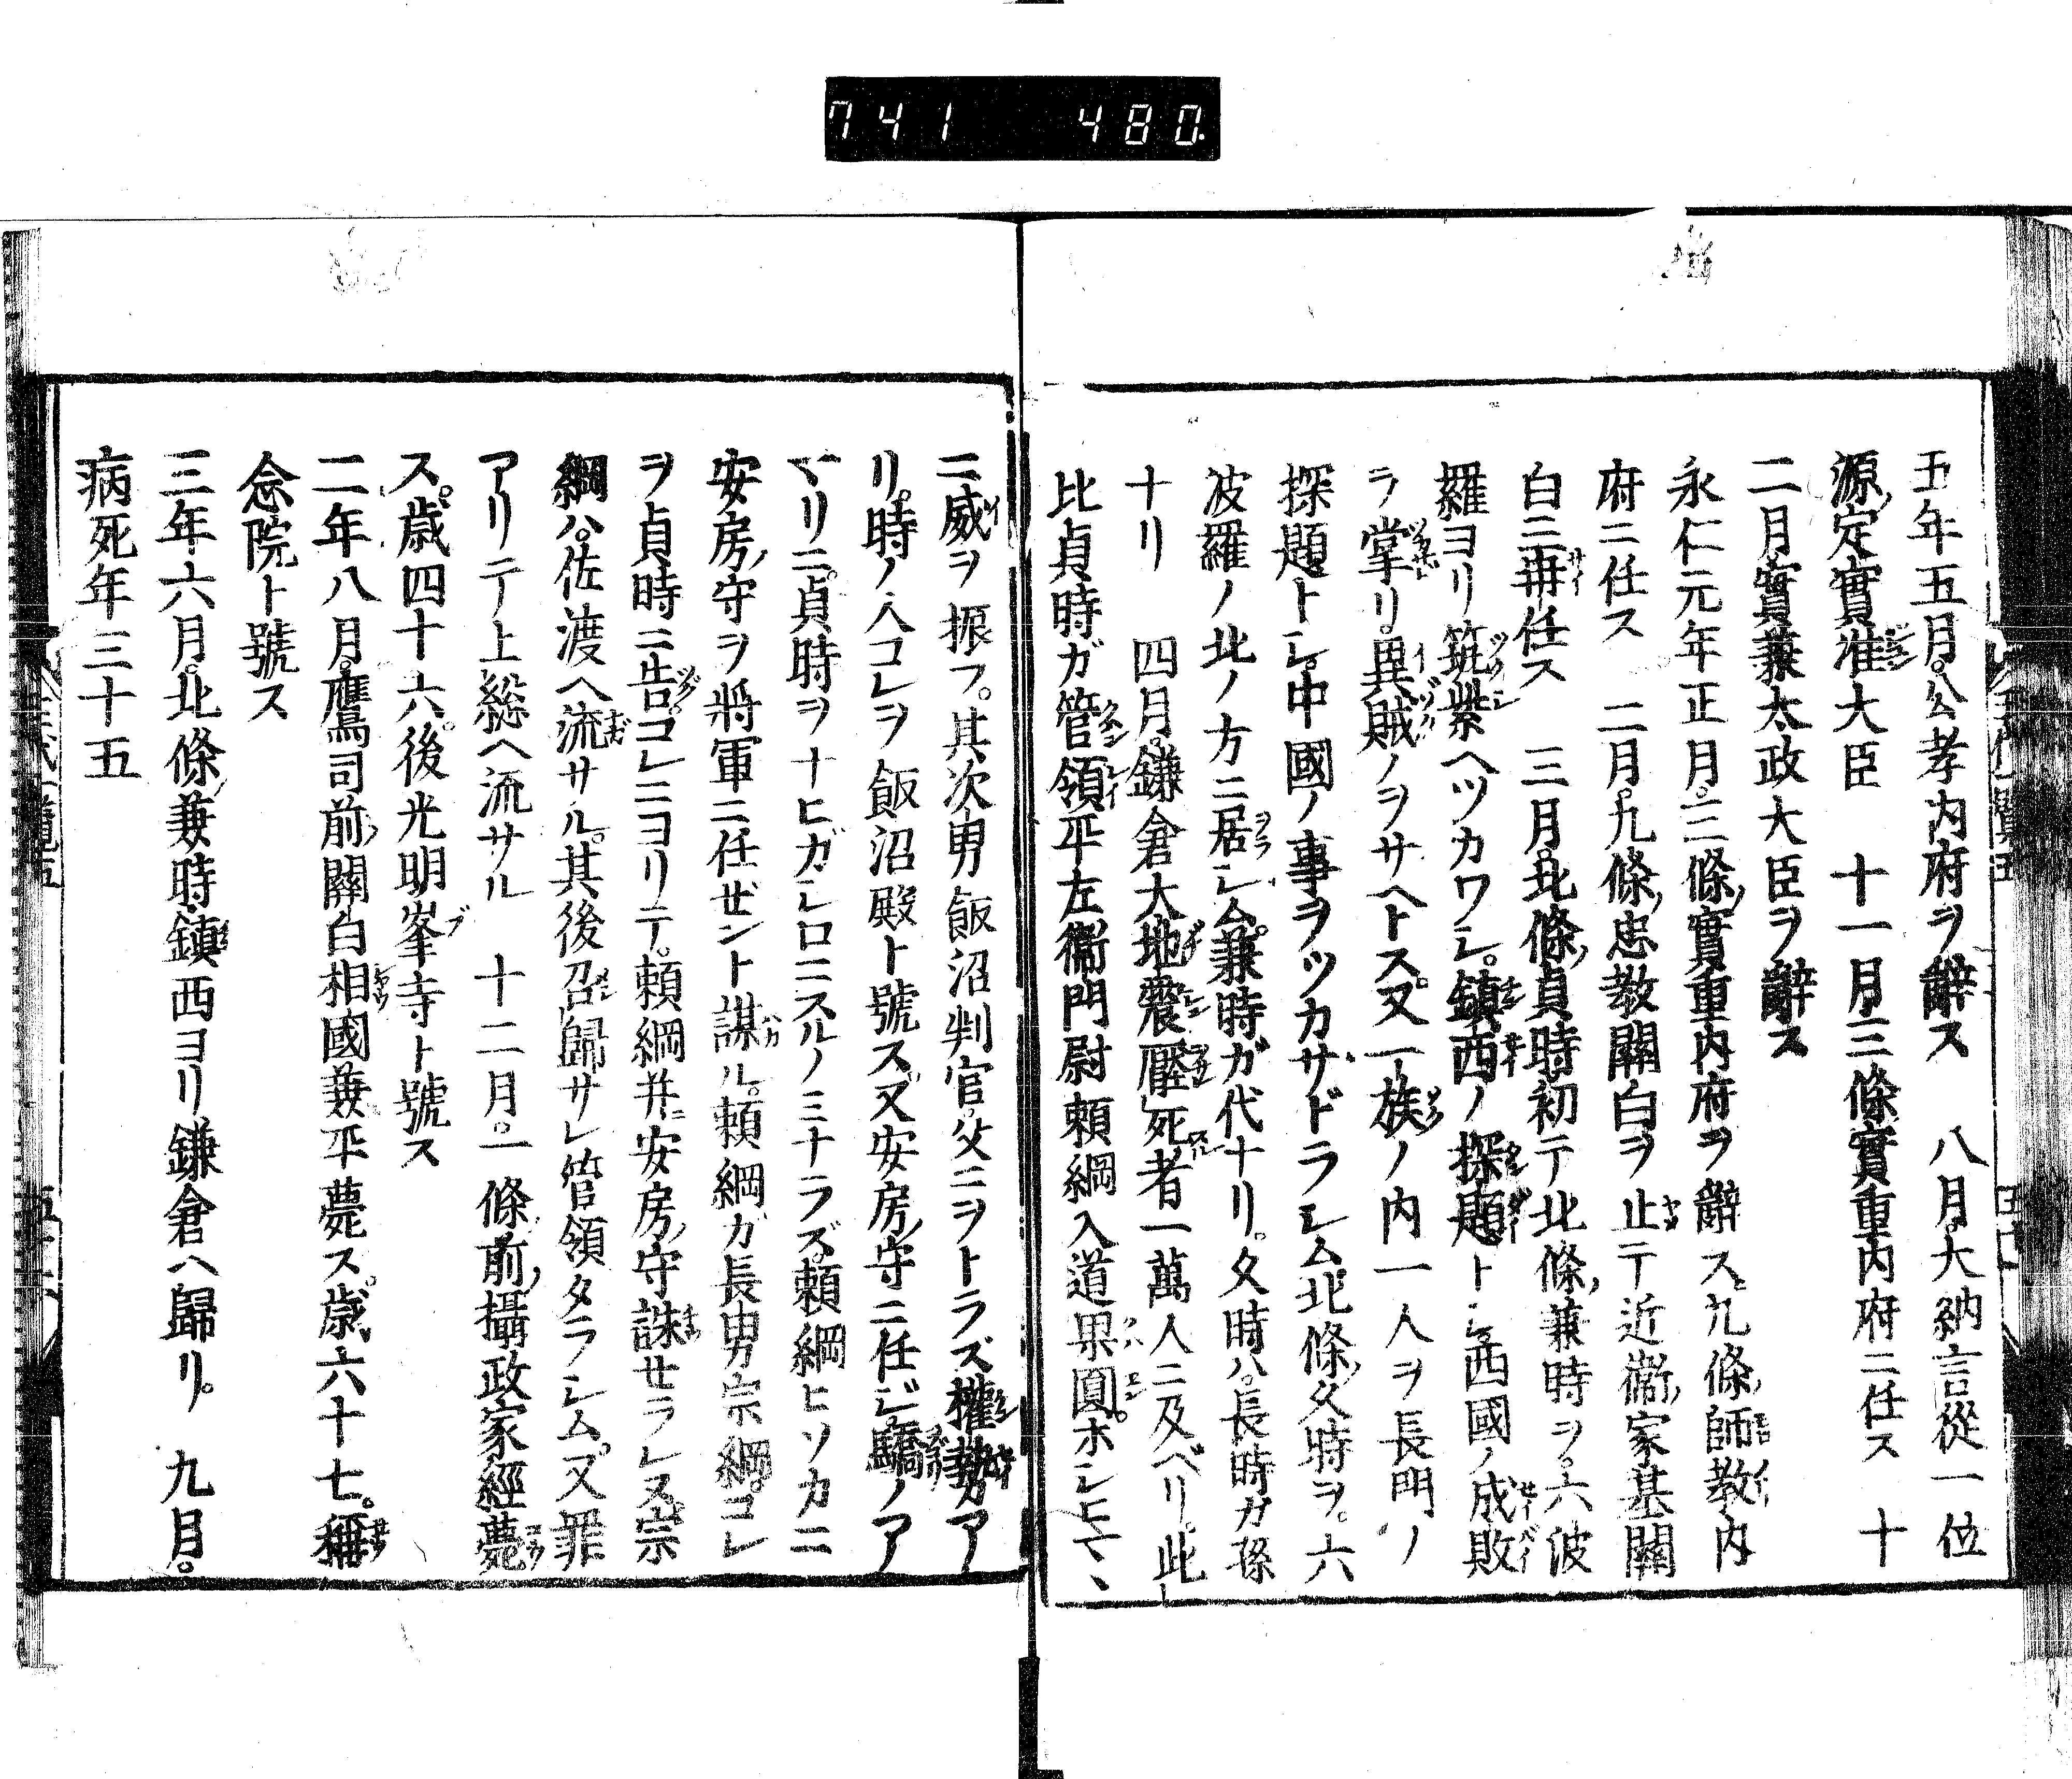 741 480
五年五月。公孝内府ヲ辭ス 八月。大納言從一位
源定實准大臣 十一月。三條實重内府ニ任ス 十
二月。實兼太政大臣ヲ辭ス
永仁元年正月。三條實重内府ヲ辭ス。九條師教内
府ニ任ス 二月。九條忠教關白ヲ止テ近衞家基關
白ニ再任ス 三月。北條貞時初テ北條兼時ヲ。六波
羅ヨリ筑紫ヘツカワシ。鎮西ノ探題トシ。西國ノ成敗
ヲ掌リ。異賊ノヲサヘトス。又一族ノ内一人ヲ長門ノ
探題トシ。中國ノ事ヲツカサドラシム。北條久時ヲ。六
波羅ノ北ノ方ニ居シム。兼時ガ代ナリ。久時ハ。長時ガ孫
ナリ 四月。鎌倉大地震壓死者一萬人ニ及ベリ。此
比貞時ガ管領平左衞門尉頼綱入道果圓。ホシヒマヽ
ニ威ヲ振フ。其次男飯沼判官。父ニヲトラズ權勢カア
リ。時ノ人コレヲ飯沼殿ト號ス。又安房守ニ任ジ。驕ノア
マリニ。貞時ヲナヒガシロニスルノミナラズ。頼綱ヒソカニ
安房守ヲ將軍ニ任ぜント謀ル。頼綱ガ長男宗綱。コレ
ヲ貞時ニ告。コレニヨリテ。頼綱并ニ安房守誅セラレヌ。宗
綱ハ。佐渡ヘ流サル。其後召歸サレ管領タラシム。又罪
アリテ上総ヘ流サル 十二月。一條前攝政家經薨
ス。歳四十六。後光明峯寺ト號ス
二年八月。鷹司前關白相國兼平薨ス。歳六十七。稱
念院ト號ス
三年六月。北條兼時鎮西ヨリ鎌倉ヘ歸リ。 九月。
病死年三十五